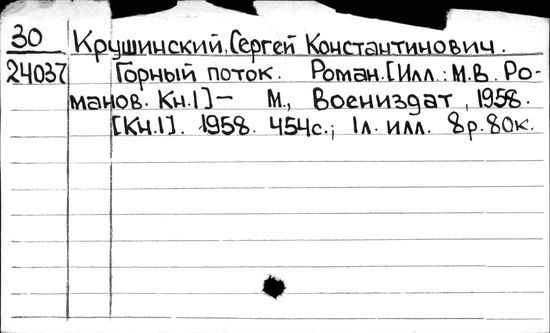 30 Крушинский, Сергей Константинович.
24037 Горный поток. Роман. [Илл.: М.В. Ро-
манов. Кн.1] – М., Воениздат, 1958.
[Кн.1]. 1958. 454с.; 1л. илл. 8р.80к.